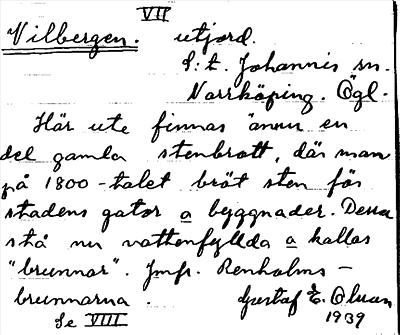 VII
Vilbergen. utjord.
S:t. Johannis sn.
Norrköping. Ögl.
Här ute finnas ännu en
del gamla stenbrott, där man
på 1800-talet bröt sten för
stadens gator a byggnader. Dessa
stå nu vattenfyllda a kallas
"brunnar". Jmfr. Renholms-
brunnarna. Gustaf E. Olsson
Se VIII 1939